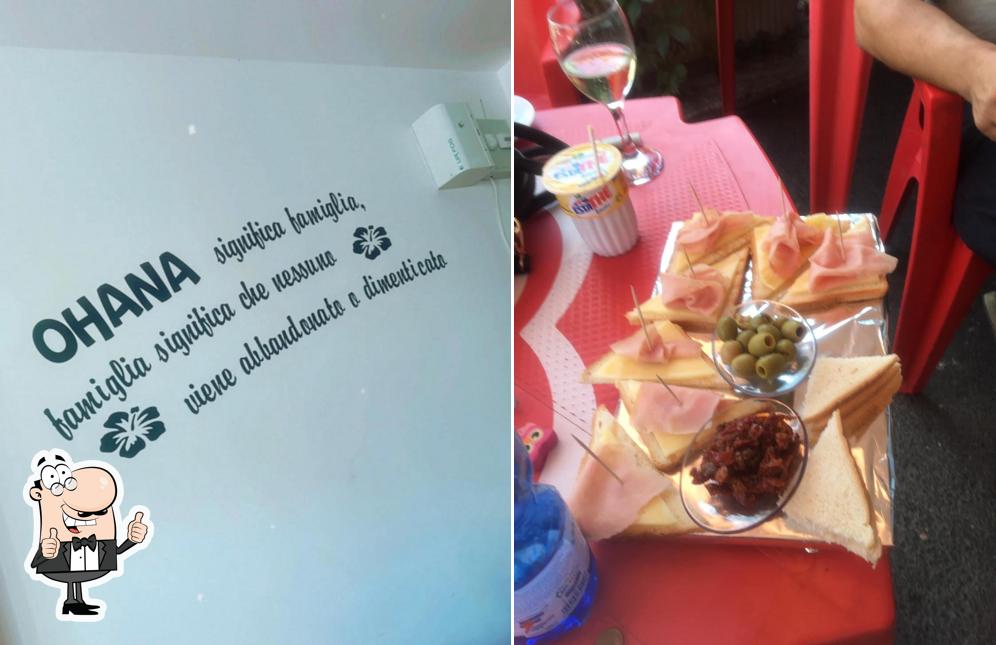 OHANA significa famiglia,
famiglia significa che nessuno
viene abbandonato o dimenticato
estaTHÉ